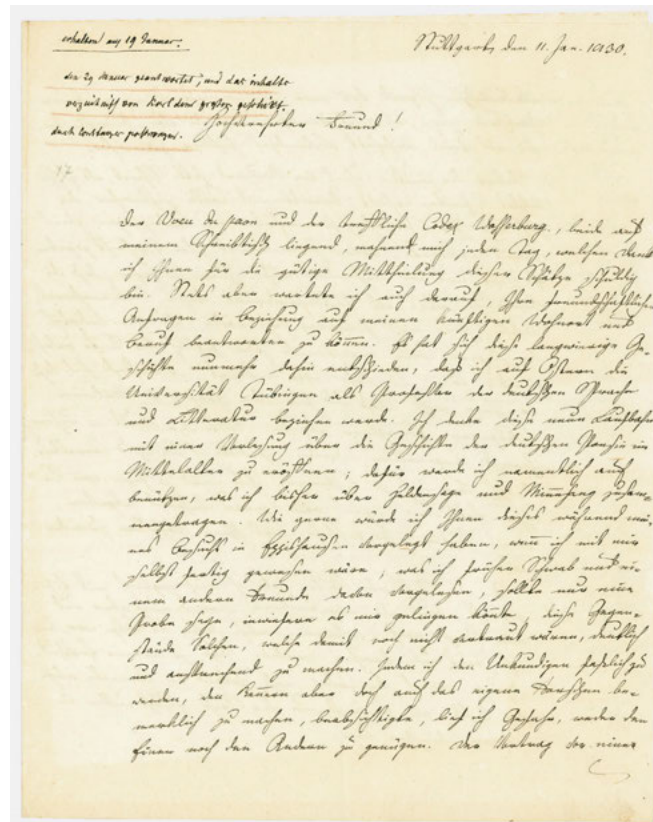 erhalten am 19 Januar.
Stuttgart, den 11. Jan. 1830.
den 29 Januar geantwortet, und das inhalts
verzeichniss von Karl dem grossen geschickt.
nach Constanzer
Hochverehrter Freund!
17
Der Voeu du paon und der treffliche Codex Wasserburg., beide auf
meinem Schreibtische liegend, mahnend mich jeden Tag, welchen Dank
ich Ihnen für die gütige Mittheilung dieser Schätze schuldig
bin. Stets aber wartete ich auch darauf, Ihre freundschaftlichen
Anfragen in Beziehung auf meinen künftigen Wohnort und
Beruf beantworten zu können. Es hat sich diese langwierige Ge-
schichte nunmehr dahin entschieden, daß ich auf Ostern die
Universität Tübingen als Professor der deutschen Sprache
und Litteratur beziehen werde. Ich denke diese neue Laufbahn
mit einer Vorlesung über die Geschichte der deutschen Poesie im
Mittelalter zu eröffnen; dafür werde ich namentlich auch
benützen, was ich bisher über Heldensage und Minnesang zusam-
mengetragen. Wie gerne würde ich Ihnen dieses während mei-
nes Besuchs in Eppishausen vorgelegt haben, wenn ich mit mir
selbst fertig gewesen wäre; was ich früher Schwab und ei-
nem andern Freunde davon vorgelesen, sollte nur eine
Probe seyn, inwiefern es mir gelingen könnte, diese Gegen-
stände Solchen, welche damit noch nicht vertraut wären, deutlich
und ansprechend zu machen. Indem ich den Unkundigen faßlich zu
werden, den Kennern aber doch auch das eigene Forschen be-
merklich zu machen, beabsichtigte, lief ich Gefahr, weder den
Einen noch den Andern zu genügen. Der Vortrag vor einer